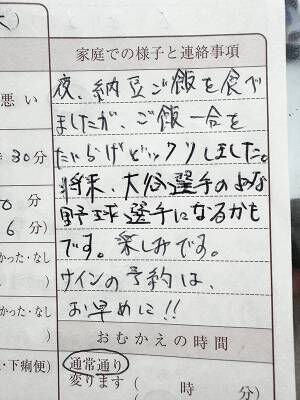 家庭での様子と連絡事項
夜、納豆ご飯を食べ
ましたが、ご飯一合を
たいらげビックリしました。
将来、大谷選手のような
野球選手になるかも
です。楽しみです。
サインの予約は、
お早めに!!
おむかえの時間
通常通り
変ります ( 時 分)
悪い
30分
0 分
6 分)
かった・なし
)
かった・なし
)
・下痢便)